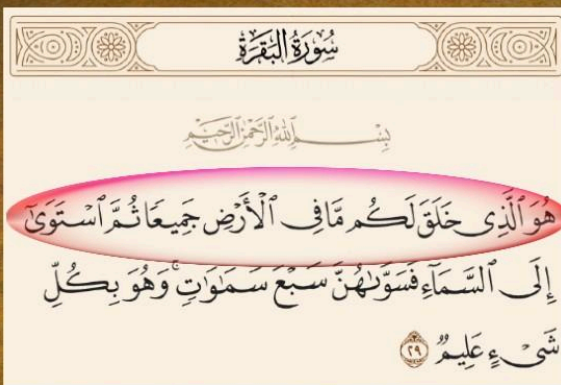 سُورَةُ البَقَرَةِ
بِسْمِ ٱللَّهِ ٱلرَّحْمَٰنِ ٱلرَّحِيمِ
هُوَ ٱلَّذِى خَلَقَ لَكُم مَّا فِى ٱلْأَرْضِ جَمِيعًا ثُمَّ ٱسْتَوَىٰٓ
إِلَى ٱلسَّمَآءِ فَسَوَّىٰهُنَّ سَبْعَ سَمَٰوَٰتٍۢ ۚ وَهُوَ بِكُلِّ
شَىْءٍ عَلِيمٌ ٢٩